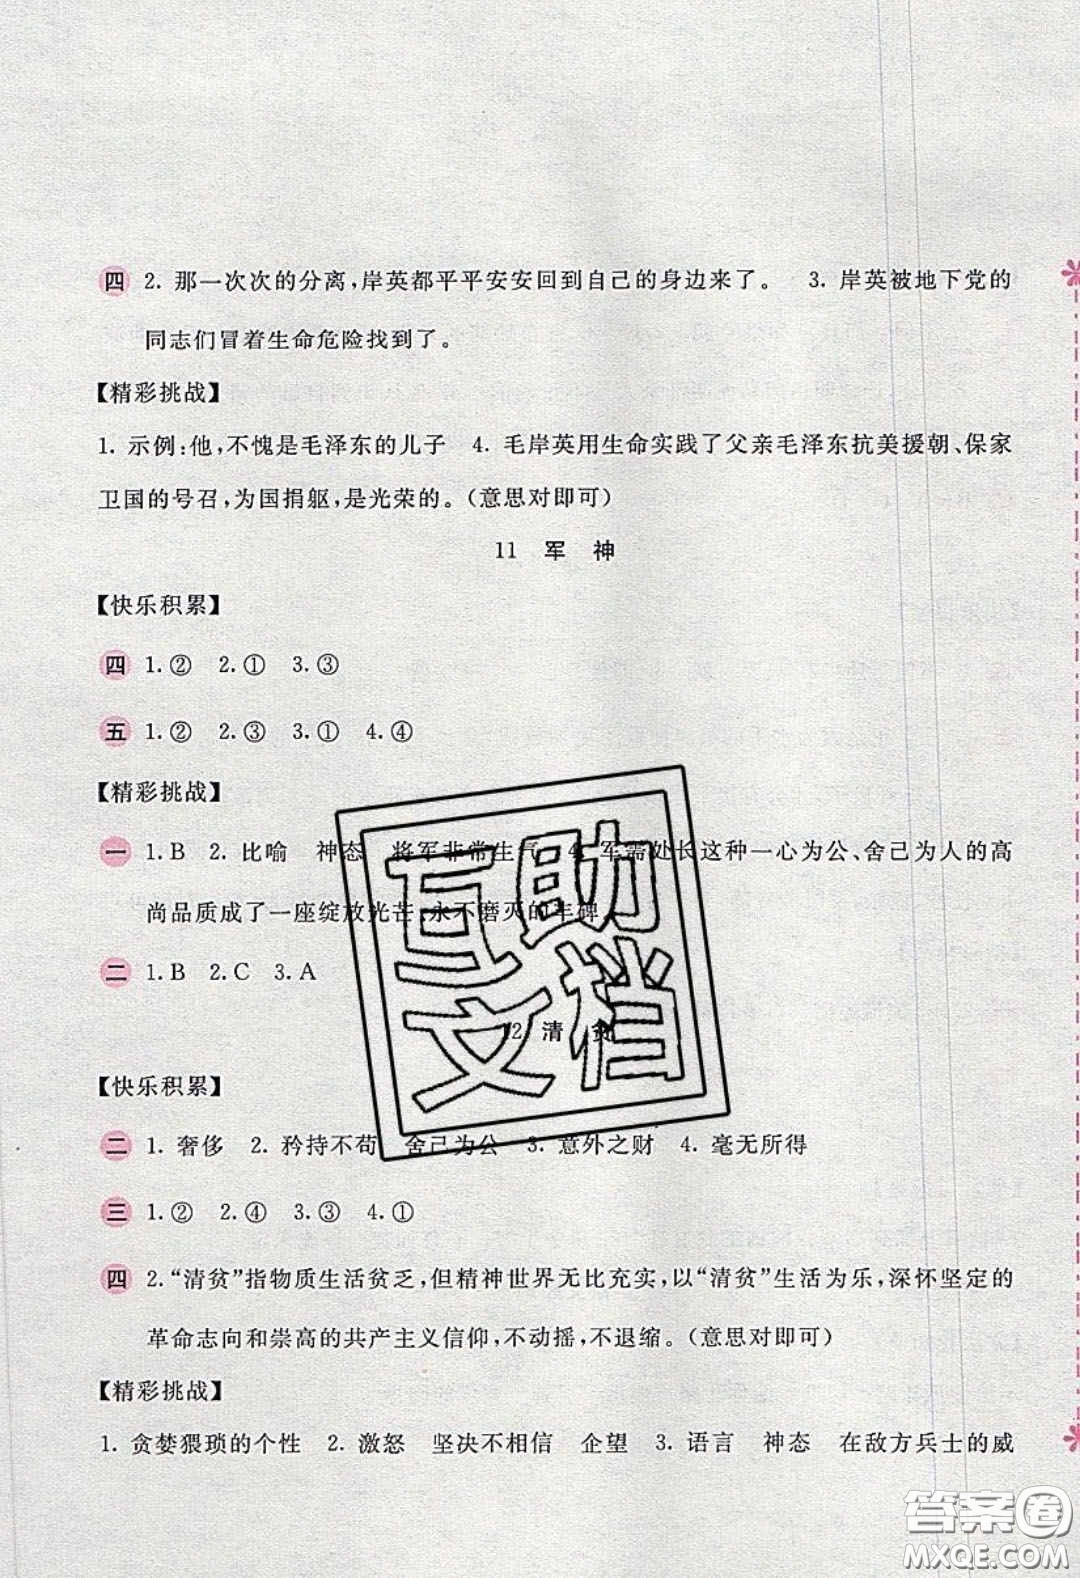 四 2. 那一次次的分离,岸英都平平安安回到自己的身边来了。 3. 岸英被地下党的
同志们冒着生命危险找到了。
【精彩挑战】
1. 示例:他,不愧是毛泽东的儿子 4. 毛岸英用生命实践了父亲毛泽东抗美援朝、保家
卫国的号召,为国捐躯,是光荣的。(意思对即可)
11 军 神
【快乐积累】
四 1.② 2.① 3.③
五 1.② 2.③ 3.① 4.④
【精彩挑战】
一 1.B 2. 比喻 神态 将军非常生气 4. 军需处长这种一心为公、舍己为人的高
尚品质成了一座绽放光芒、永不磨灭的丰碑。
二 1.B 2.C 3.A
12 清 贫
【快乐积累】
二 1. 奢侈 2. 矜持不苟 舍己为公 3. 意外之财 4. 毫无所得
三 1.② 2.④ 3.③ 4.①
四 2.“清贫”指物质生活贫乏,但精神世界无比充实,以“清贫”生活为乐,深怀坚定的
革命志向和崇高的共产主义信仰,不动摇,不退缩。(意思对即可)
【精彩挑战】
1. 贪婪猥琐的个性 2. 激怒 坚决不相信 企望 3. 语言 神态 在敌方兵士的威
互助
文档
答案卷
MXQE.COM